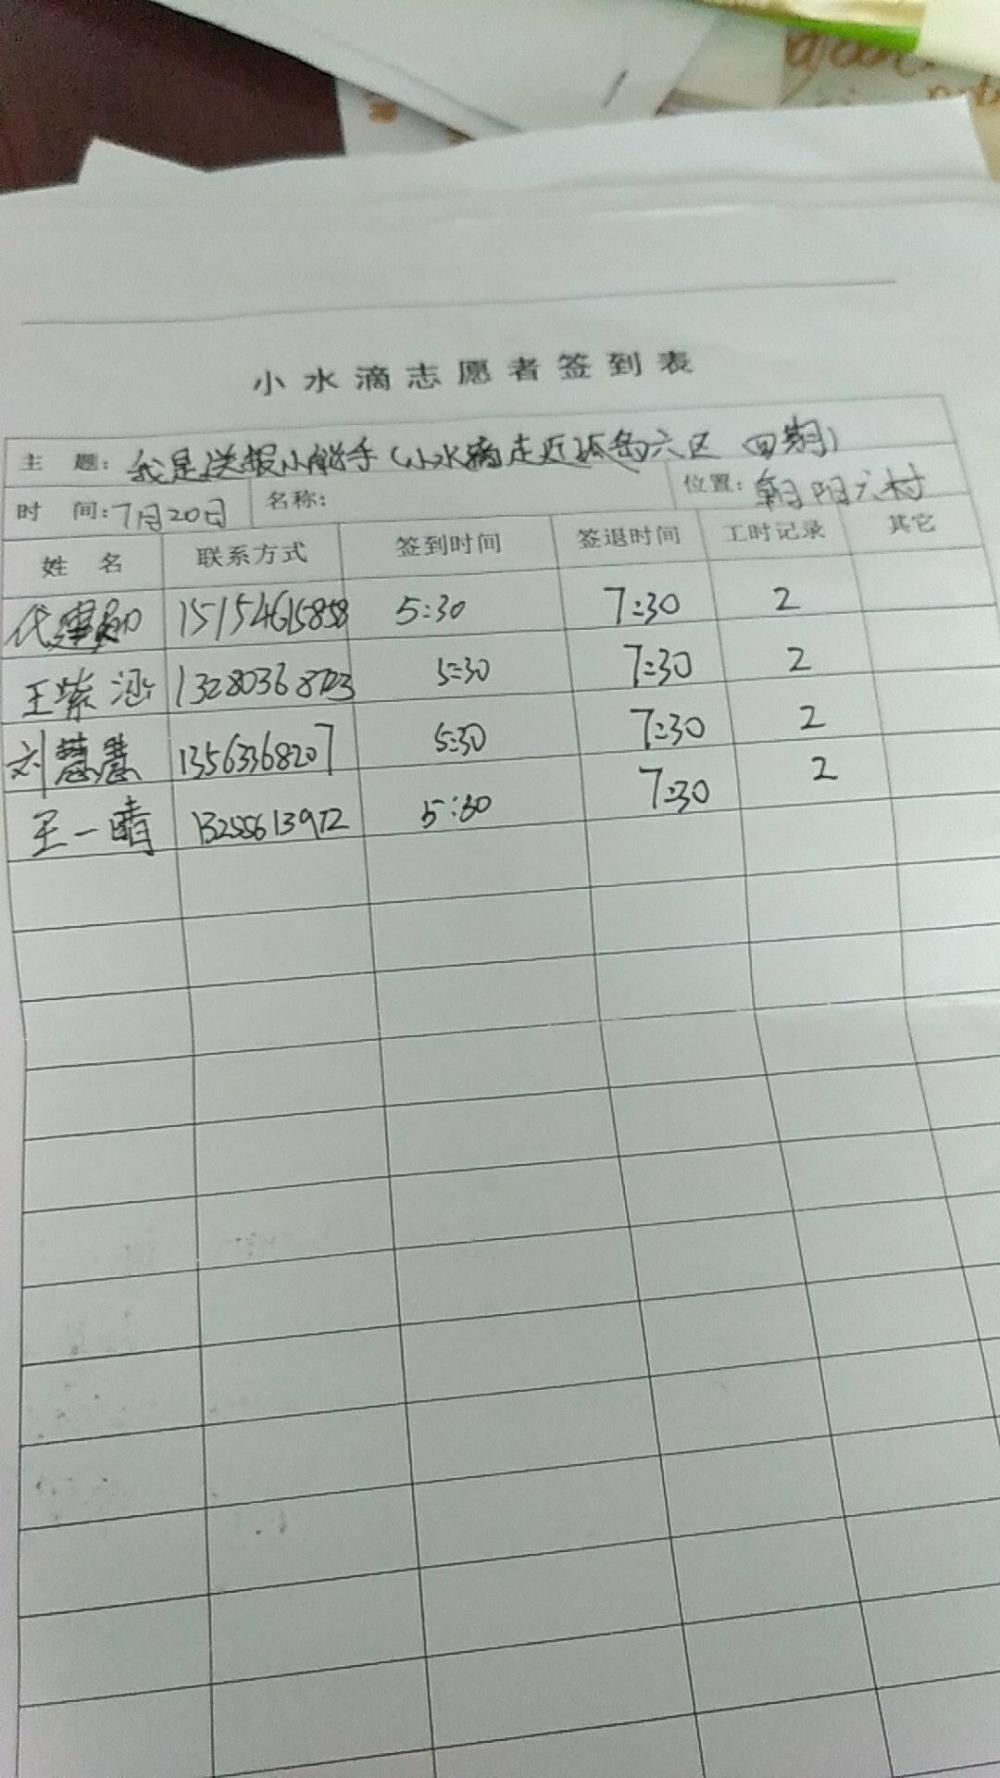 小水滴志愿者签到表
主 题: 我是送报小能手(小水滴走近孤岛六区 四期)
时 间: 7月20日 名称: 位置: 朝阳六村
姓 名 联系方式 签到时间 签退时间 工时记录 其它
代建勋 15154615858 5:30 7:30 2
王紫涵 13280368723 5:30 7:30 2
刘慧慧 13563368207 5:30 7:30 2
王一晴 13255613972 5:30 7:30 2